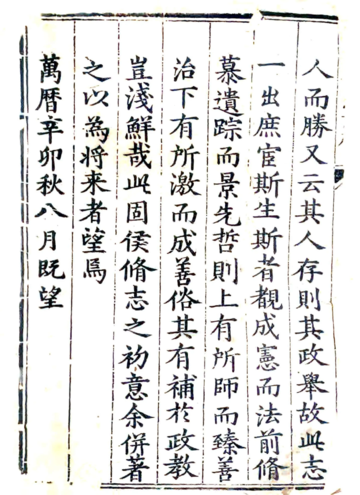 人而勝又云其人存則其政舉故此志
一出庶宦斯生斯者覩成憲而法前脩
慕遺踪而景先哲則上有所師而臻善
治下有所激而成善俗其有補於政教
豈淺鮮哉此固侯脩志之初意余併著
之以為将来者望焉
萬曆辛卯秋八月既望